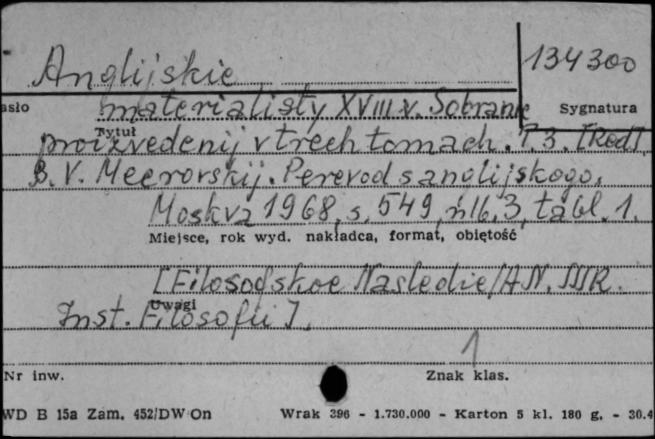 Anglijskie 134300
asło materialisty XVIII v. Sobranie Sygnatura
Tytuł proizvedenij v trech tomach. T. 3. [Red].
B. V. Meerovskij. Perevod s anglijskogo.
Moskva 1968, s. 549, nlb. 3, tabl. 1.
Miejsce, rok wyd. nakładca, format, objętość
[Filosofskoe Nasledie/AN. SSSR.
Uwagi
Inst. Filosofii].
1
Nr inw. Znak klas.
WD B 15a Zam. 452/DW On Wrak 396 - 1.730.000 - Karton 5 kl. 180 g. - 30.4